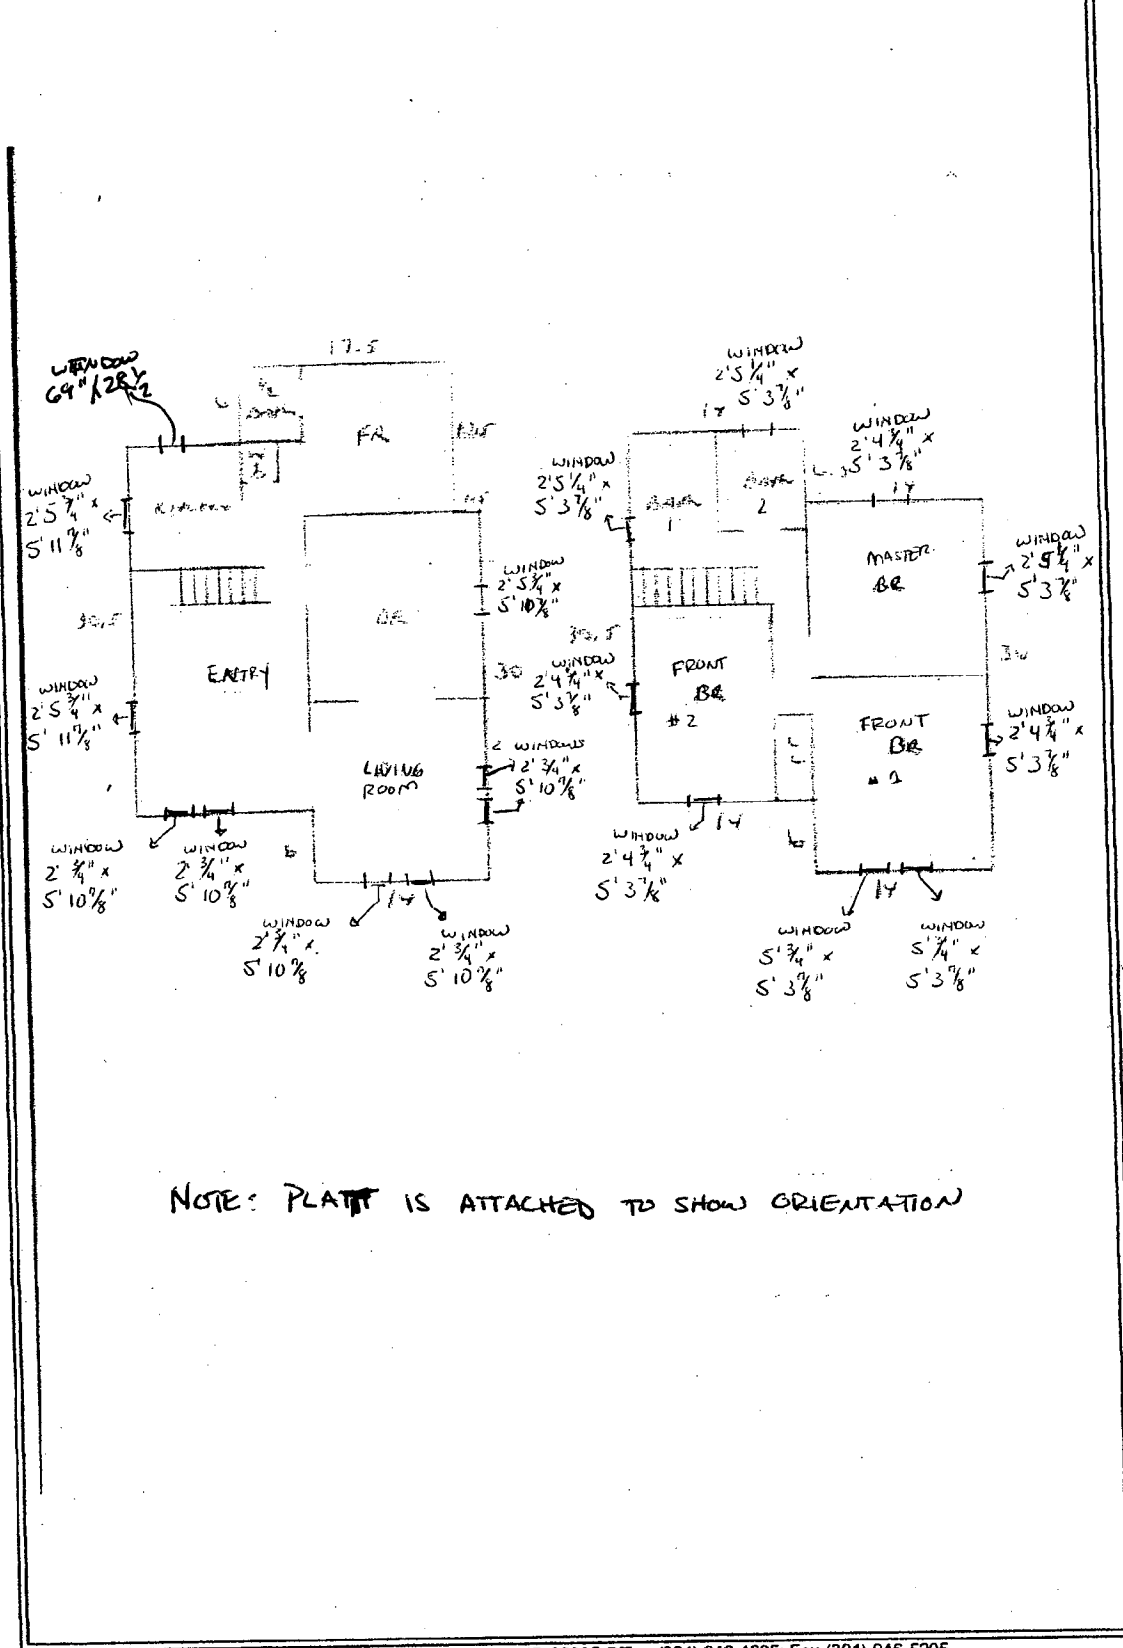 17.5
WINDOW
69" X 28 1/2
1/2
BATH
FR
KITCHEN
WINDOW
2' 5 3/4" x
5' 11 7/8"
30.5
ENTRY
WINDOW
2' 5 3/4" x
5' 11 7/8"
DR
WINDOW
2' 5 3/4" x
5' 10 7/8"
30
LIVING
ROOM
2 WINDOWS
2' 3/4" x
5' 10 7/8"
WINDOW
2' 3/4" x
5' 10 7/8"
WINDOW
2' 3/4" x
5' 10 7/8
6
14
WINDOW
2' 3/4" x
5' 10 7/8
WINDOW
2' 3/4" x
5' 10 7/8"
WINDOW
2' 5 1/4" x
5' 3 7/8"
14
WINDOW
2' 4 3/4" x
5' 3 7/8"
14
WINDOW
2' 5 1/4" x
5' 3 7/8"
BATH
1
BATH
2
MASTER
BR
WINDOW
x
5' 3 7/8"
30.5
WINDOW
2' 4 3/4" x
5' 3 7/8"
FRONT
BR
#2
FRONT
BR
# 1
WINDOW
2' 4 3/4" x
5' 3 7/8"
14
WINDOW
2' 4 3/4" x
5' 3 7/8"
6
14
WINDOW
5' 3/4" x
5' 3 7/8"
WINDOW
5' 3/4" x
5' 3 7/8"
NOTE: PLATT IS ATTACHED TO SHOW ORIENTATION